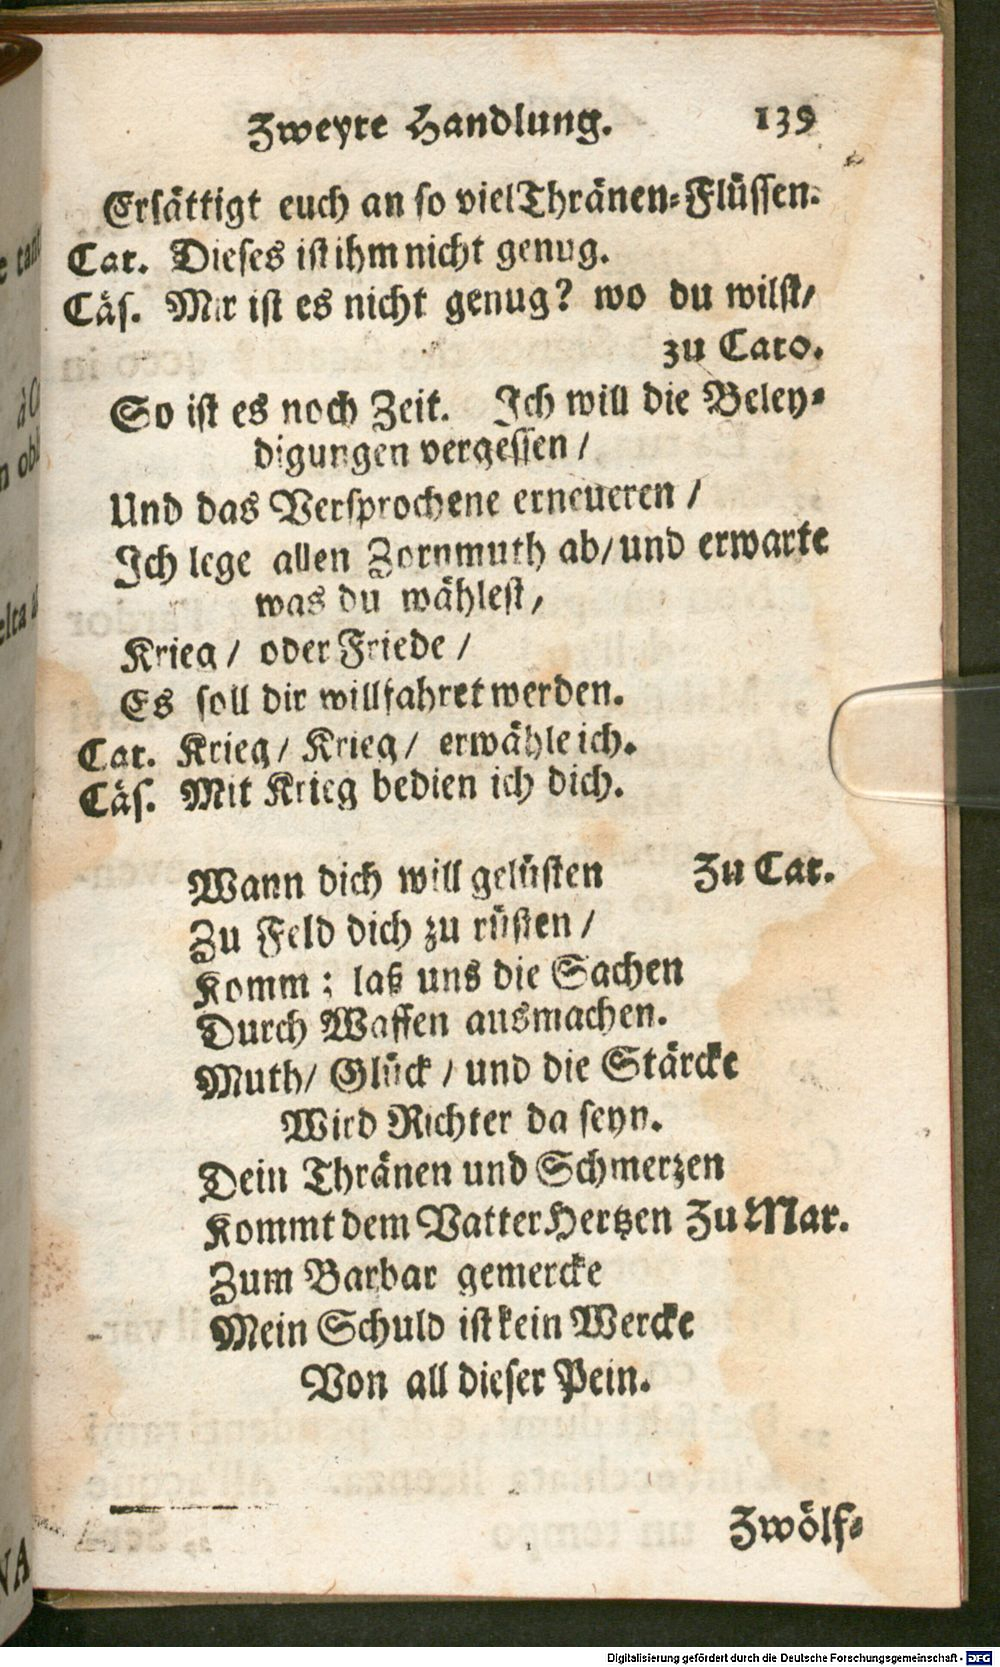 Zweyte Handlung. 139
Ersättigt euch an so viel Thränen-Flüssen.
Cat. Dieses ist ihm nicht genug.
Cäs. Mir ist es nicht genug? wo du wilst/
zu Cato.
So ist es noch Zeit. Ich will die Beley-
digungen vergessen /
Und das Versprochene erneueren /
Ich lege allen Zornmuth ab/ und erwarte
was du wählest /
Krieg / oder Friede /
Es soll dir willfahret werden.
Cat. Krieg / Krieg / erwähle ich.
Cäs. Mit Krieg bedien ich dich.
Wann dich will gelüsten Zu Cat.
Zu Feld dich zu rüsten /
Komm ; laß uns die Sachen
Durch Waffen ausmachen.
Muth/ Glück / und die Stärcke
Wird Richter da seyn.
Dein Thränen und Schmerzen
Kommt dem Vatter Hertzen Zu Mar.
Zum Barbar gemercke
Mein Schuld ist kein Wercke
Von all dieser Pein.
Zwölf-
Digitalisierung gefördert durch die Deutsche Forschungsgemeinschaft - DFG